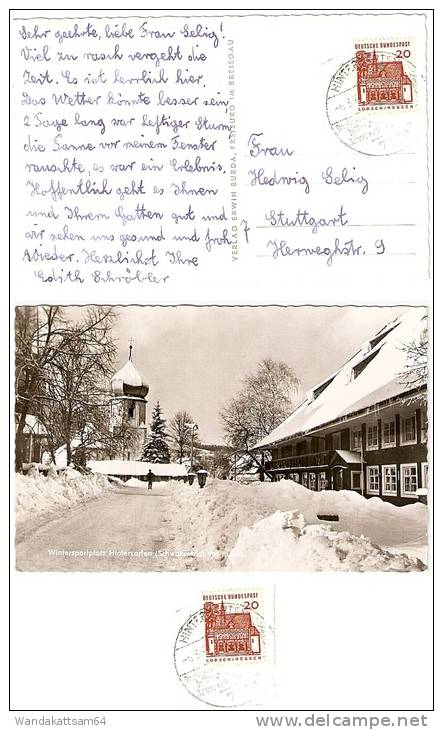 Sehr geehrte, liebe Frau Selig!
Viel zu rasch vergeht die
Zeit. Es ist herrlich hier.
Das Wetter könnte besser sein,
2 Tage lang war heftiger Sturm,
die Sanne vor meinem Fenster
rauschte, es war ein Erlebnis.
Hoffentlich geht es Ihnen
und Ihrem Gatten gut und
wir sehen uns gesund und froh
wieder. Herzlichst Ihre
Edith Schröbler
VERLAG ERWIN BURDA, FREIBURG IM BREISGAU
DEUTSCHE BUNDESPOST
20
LORSCH/HESSEN
Frau
Hedwig Selig
7 Stuttgart
Herweghstr. 9
Wintersportplatz Hinterzarten (Schwarzwald)
DEUTSCHE BUNDESPOST
20
LORSCH/HESSEN
Wandakattsam64